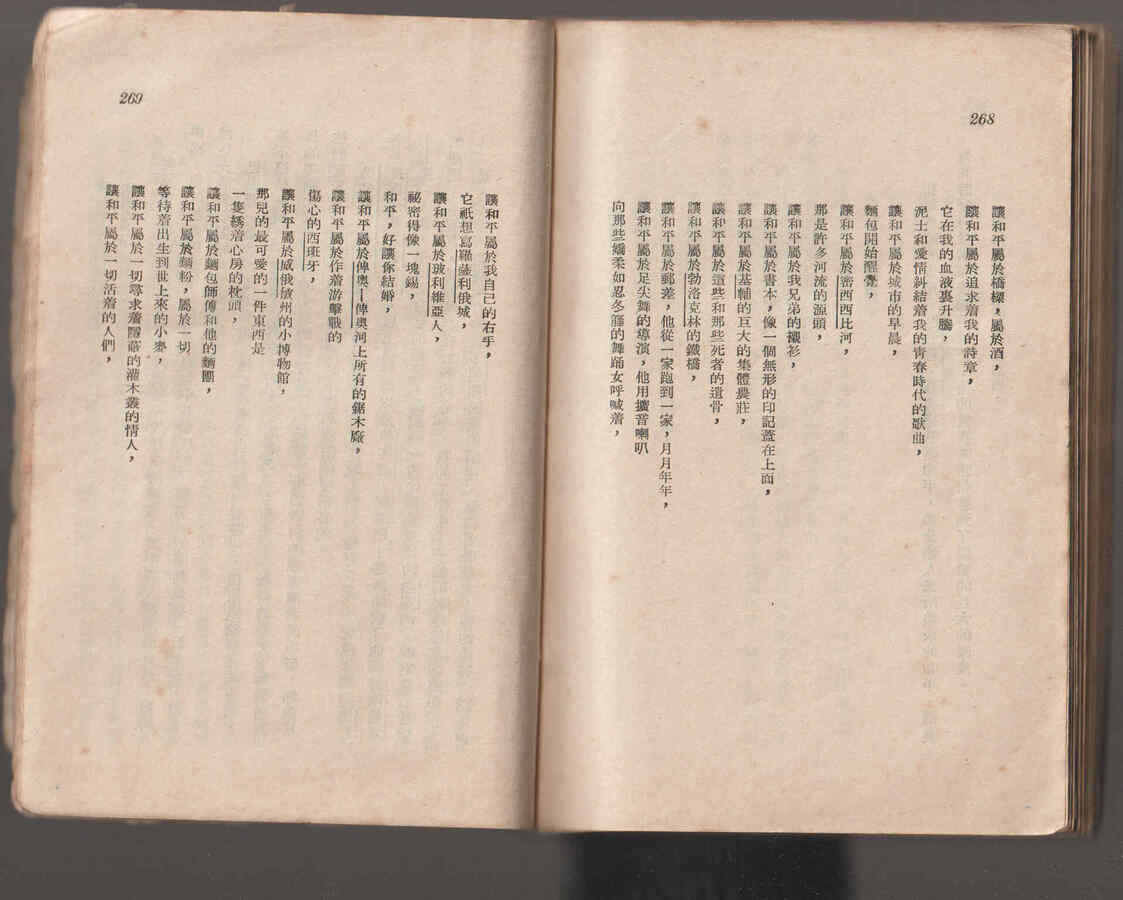 268
讓和平屬於橋樑，屬於酒，
讓和平屬於追求着我的詩章，
它在我的血液裏升騰，
泥土和愛情糾結着我的青春時代的歌曲，
讓和平屬於城市的早晨，
麵包開始醒覺，
讓和平屬於密西西比河，
那是許多河流的源頭，
讓和平屬於我兄弟的襯衫，
讓和平屬於書本，像一個無形的印記蓋在上面，
讓和平屬於基輔的巨大的集體農莊，
讓和平屬於這些和那些死者的遺骨，
讓和平屬於勃洛克林的鐵橋，
讓和平屬於郵差，他從一家跑到一家，月月年年，
讓和平屬於足尖舞的導演，他用擴音喇叭
向那些嬌柔如忍冬藤的舞踊女呼喊着，
269
讓和平屬於我自己的右手，
它祇想寫羅薩利俄城，
讓和平屬於玻利維亞人，
祕密得像一塊錫，
和平，好讓你結婚，
讓和平屬於俾奧－俾奧河上所有的鋸木廠，
讓和平屬於作着游擊戰的
傷心的西班牙，
讓和平屬於威俄敏州的小博物館，
那兒的最可愛的一件東西是
一隻繡着心房的枕頭，
讓和平屬於麵包師傅和他的麵團，
讓和平屬於麵粉，屬於一切
等待着出生到世上來的小麥，
讓和平屬於一切尋求着蔭蔽的灌木叢的情人，
讓和平屬於一切活着的人們，